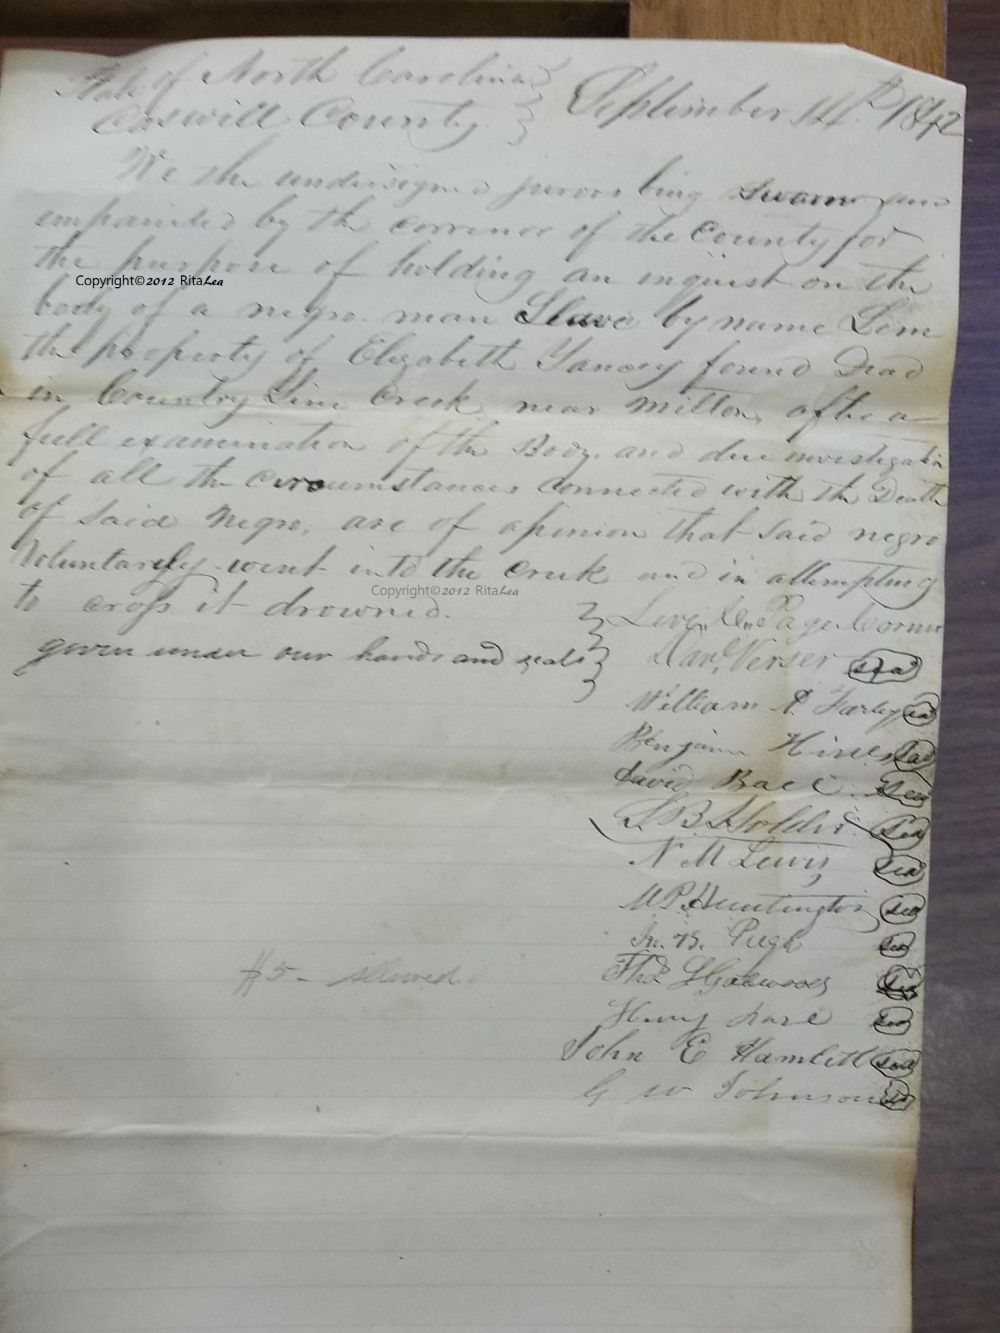 State of North Carolina } September 14th 1842
Caswell County }
We the undersigned jurors being Sworn and
empaniled by the corroner of the County for
the purpose of holding an inquest on the
Copyright©2012 RitaLea
body of a negro man Slave by name Lem
the property of Elizabeth Yancey found Dead
in Country Line Creek near Milton, after a
full examination of the Body, and due investigation
of all the circumstances connected with the Death
of said Negro, are of opinion that said negro
Voluntarely went into the creek and in attempting
Copyright©2012 RitaLea
to cross it drowned.
given under our hands and seals
Page Corner
Verser Seal
William P. Farley Seal
Benjamin Hines Seal
David Ball Seal
S B Holder Seal
N M Lewis Seal
M P Huntington Seal
Jn. B. Pugh Seal
Thos L Gatewood Seal
$5 - allowed
Henry Seal
John E Hamlett Seal
G W Johnson Seal